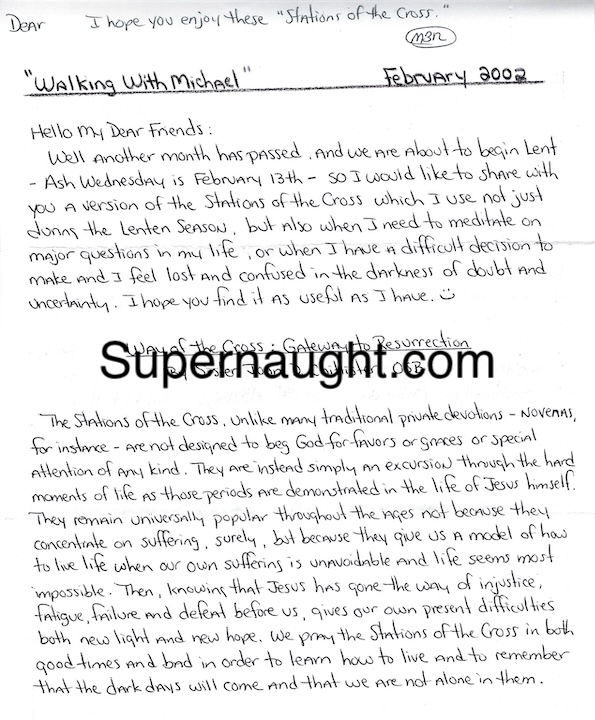 Dear I hope you enjoy these "Stations of the Cross."
MBR
"Walking With Michael" February 2002
Hello My Dear Friends:
Well Another month has passed. And we are About to begin Lent
- Ash Wednesday is February 13th - so I would like to share with
you A version of the Stations of the Cross which I use not just
during the Lenten Season, but Also when I need to meditate on
major questions in my life, or when I have a difficult decision to
make and I feel lost and confused in the darkness of doubt and
uncertainty. I hope you find it as useful as I have. ☺
Way of the Cross: Gateway to Resurrection
Supernaught.com
By Sister Joan D. Chittister, OSB
The Stations of the Cross, unlike many traditional private devotions - Novenas,
for instance - are not designed to beg God for favors or graces or special
Attention of any kind. They are instead simply an excursion through the hard
moments of life as those periods are demonstrated in the life of Jesus himself.
They remain universally popular throughout the ages not because they
concentrate on suffering, surely, but because they give us a model of how
to live life when our own suffering is unavoidable and life seems most
impossible. Then, knowing that Jesus has gone the way of injustice,
fatigue, failure and defeat before us, gives our own present difficulties
both new light and new hope. We pray the Stations of the Cross in both
good times and bad in order to learn how to live and to remember
that the dark days will come and that we are not alone in them.